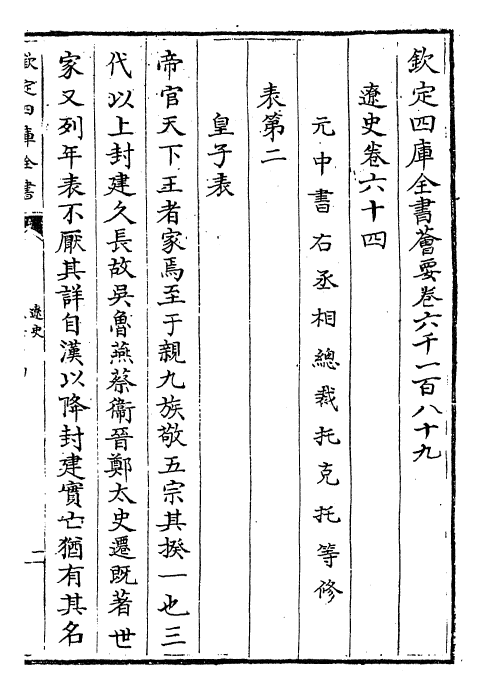 欽定四庫全書薈要卷六千一百八十九
遼史卷六十四
元中書右丞相總裁托克托等修
表第二
皇子表
帝官天下王者家焉至于親九族敬五宗其揆一也三
代以上封建久長故吳魯燕蔡衞晉鄭太史遷既著世
家又列年表不厭其詳自漢以降封建實亡猶有其名
欽定四庫全書
遼史